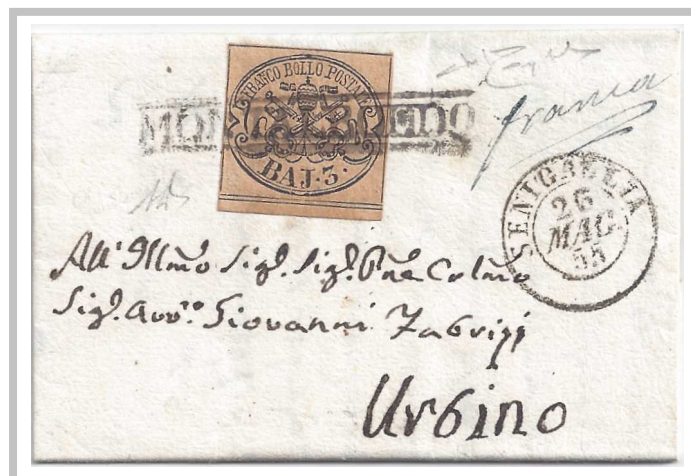 FRANCO BOLLO POSTALE
BAJ. 3.
franca
SENIGALLIA
26
MAG.
55
All' Illmo Sigl. Sigl. Pne Colmo
Sigl. Avvto Giovanni Fabrizj
Urbino